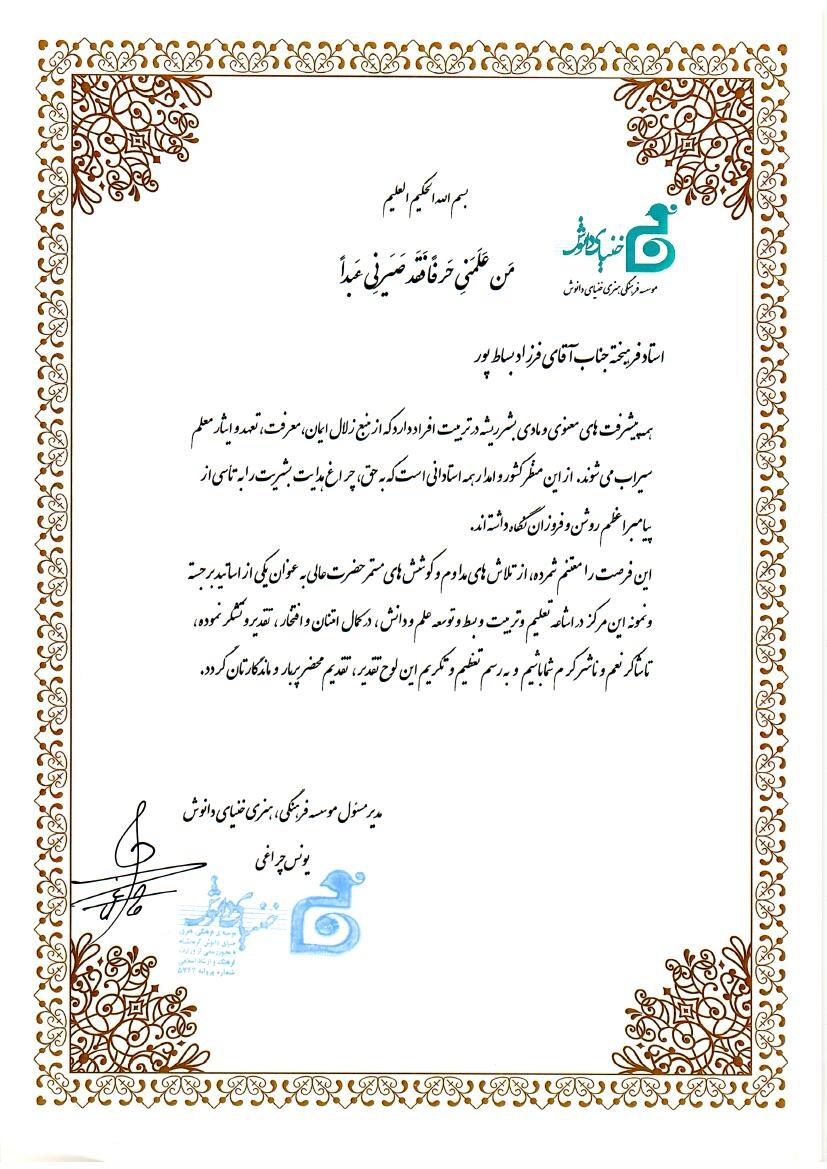 بسم الله الحکیم العلیم
خنیای دانوش
مَن عَلَّمَنِی حَرفاً فَقَد صَیَّرَنِی عَبداً
موسسه فرهنگی هنری خنیای دانوش
استاد فرهیخته جناب آقای فرزاد بساط پور
همه پیشرفت های معنوی و مادی بشر ریشه در تربیت افراد دارد که از منبع زلال ایمان، معرفت، تعهد و ایثار معلم
سیراب می شوند. از این منظر کشور وامدار همه استادانی است که به حق، چراغ هدایت بشریت را به تاسی از
پیامبر اعظم روشن و فروزان نگاه داشته اند.
این فرصت را مغتنم شمرده، از تلاش های مداوم و کوشش های مستمر حضرت عالی به عنوان یکی از اساتید برجسته
و نمونه این مرکز در اشاعه تعلیم و تربیت و بسط و توسعه علم و دانش، در کمال امتنان و افتخار، تقدیر و تشکر نموده،
تا شاکر نعم و ناشر کرم شما باشیم و به رسم تعظیم و تکریم این لوح تقدیر، تقدیم محضر پربار و ماندگارتان گردد.
مدیر مسئول موسسه فرهنگی، هنری خنیای دانوش
یونس چراغی
خنیای دانوش
موسسه ی فرهنگی هنری
خنیای دانوش کرمانشاه
با مجوز رسمی از وزارت
فرهنگ و ارشاد اسلامی
شماره پروانه ۵۷۲۲